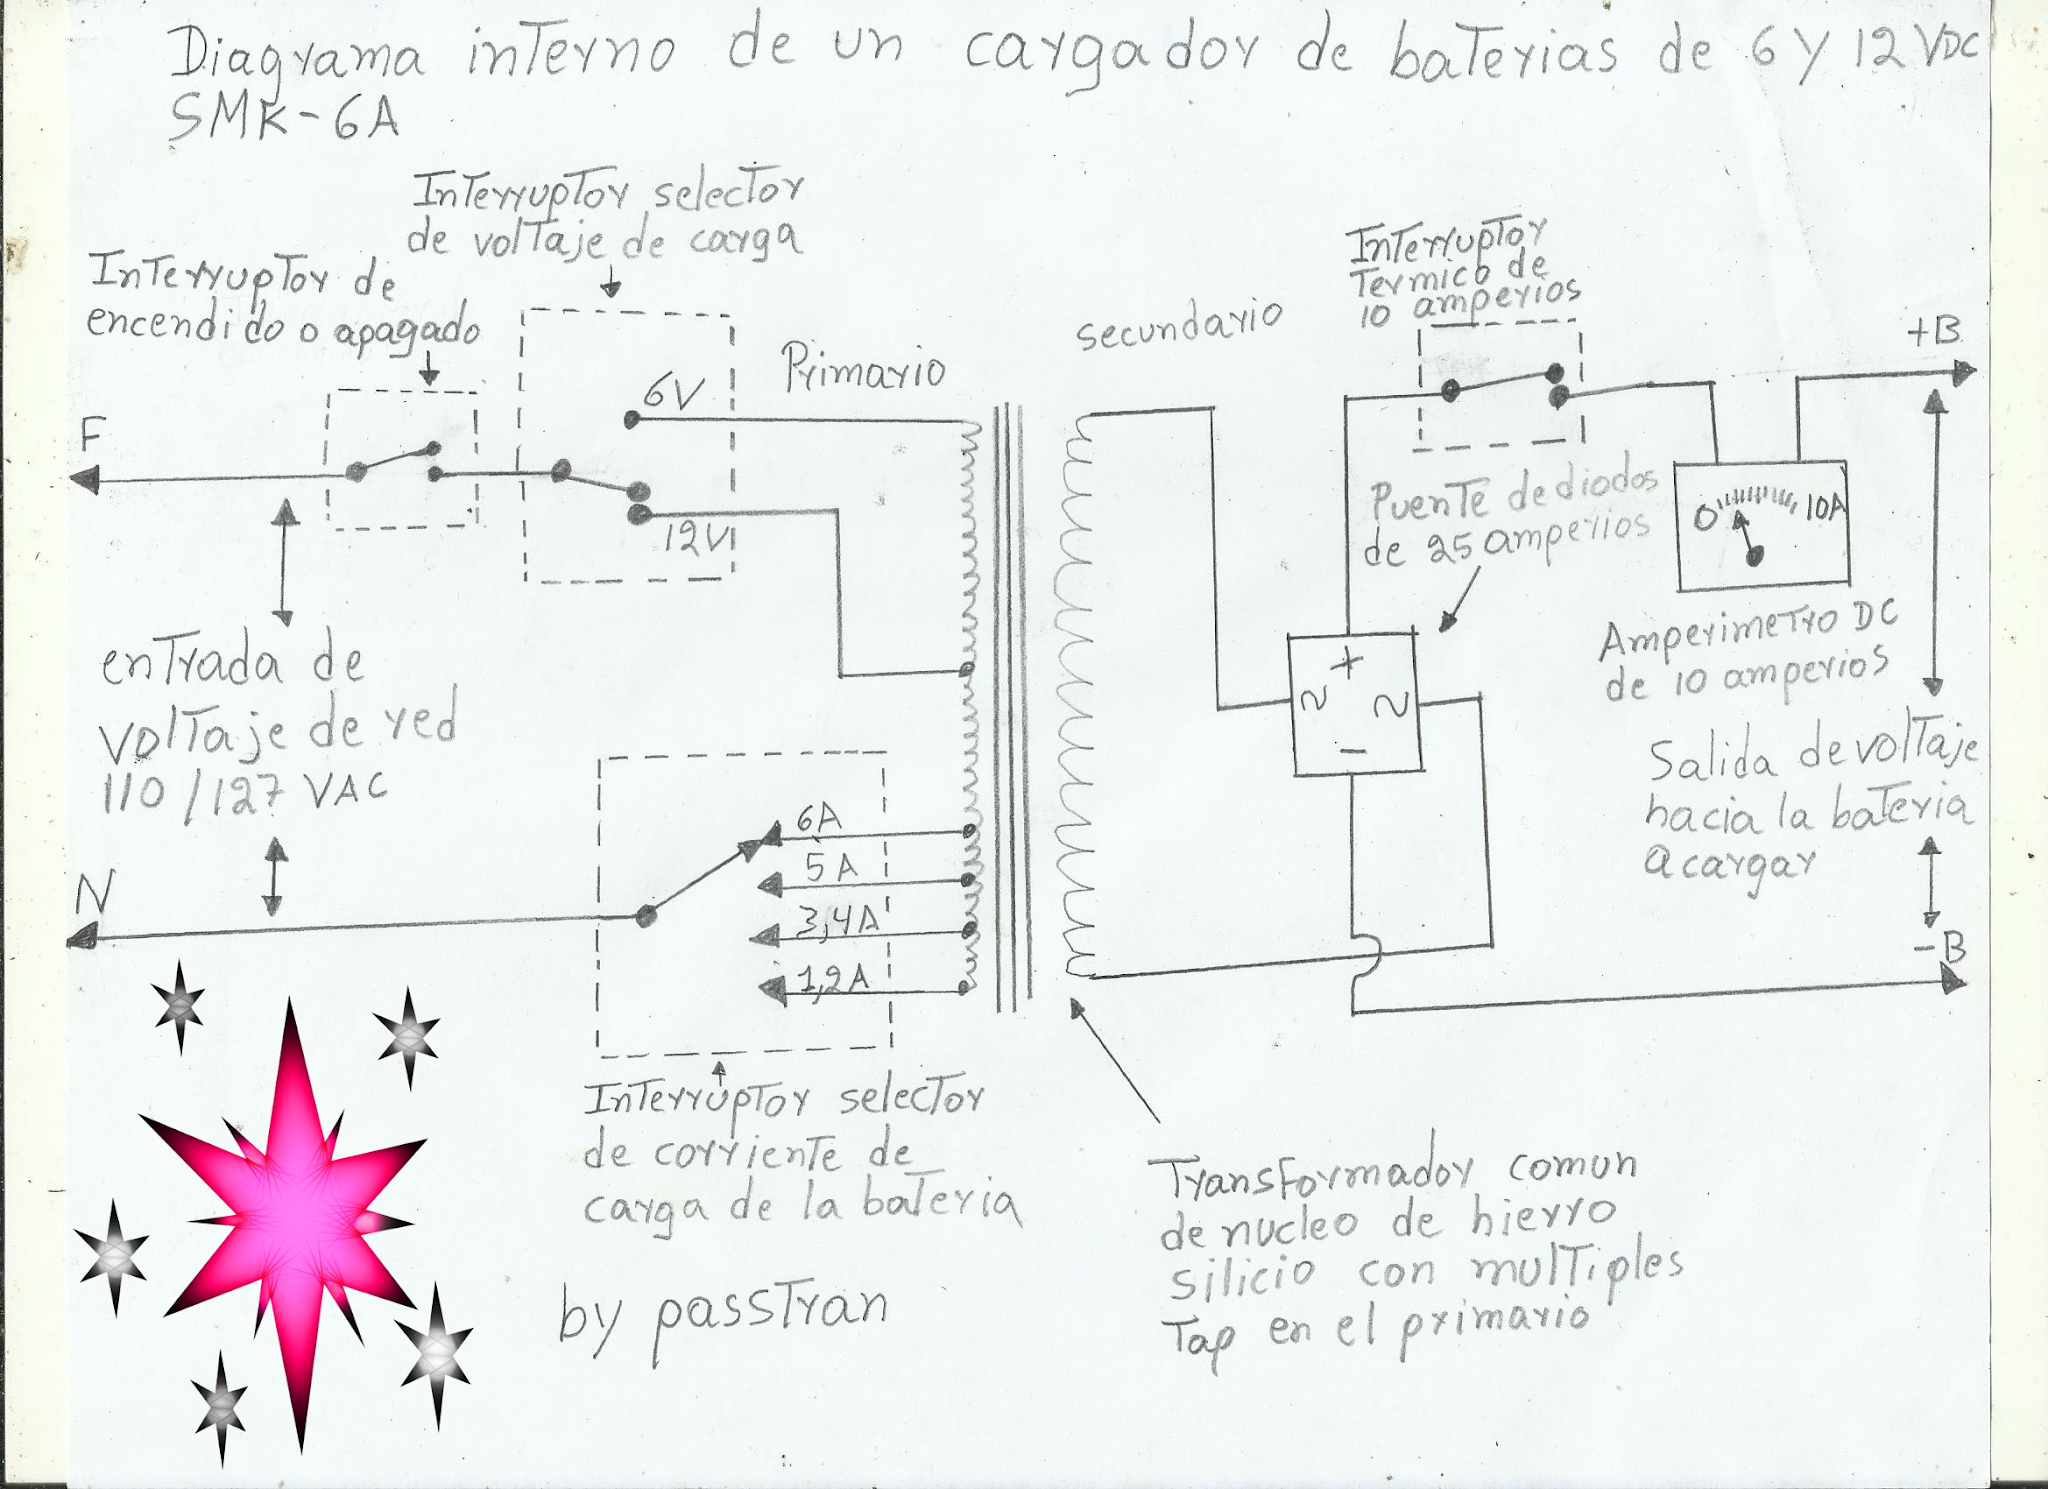 Diagrama interno de un cargador de baterias de 6 y 12 VDC
SMK-6A
Interruptor selector
de voltaje de carga
Interruptor de
encendido o apagado
Interruptor
Termico de
10 amperios
secundario
+B
6V
Primario
F
12V
Puente de diodos
de 25 amperios
0
10A
Amperimetro DC
de 10 amperios
entrada de
voltaje de red
110/127 VAC
+
~
~
-
Salida de voltaje
hacia la bateria
a cargar
6A
5A
3,4A
1,2A
N
-B
Interruptor selector
de corriente de
carga de la bateria
Transformador comun
de nucleo de hierro
silicio con multiples
Tap en el primario
by passTran